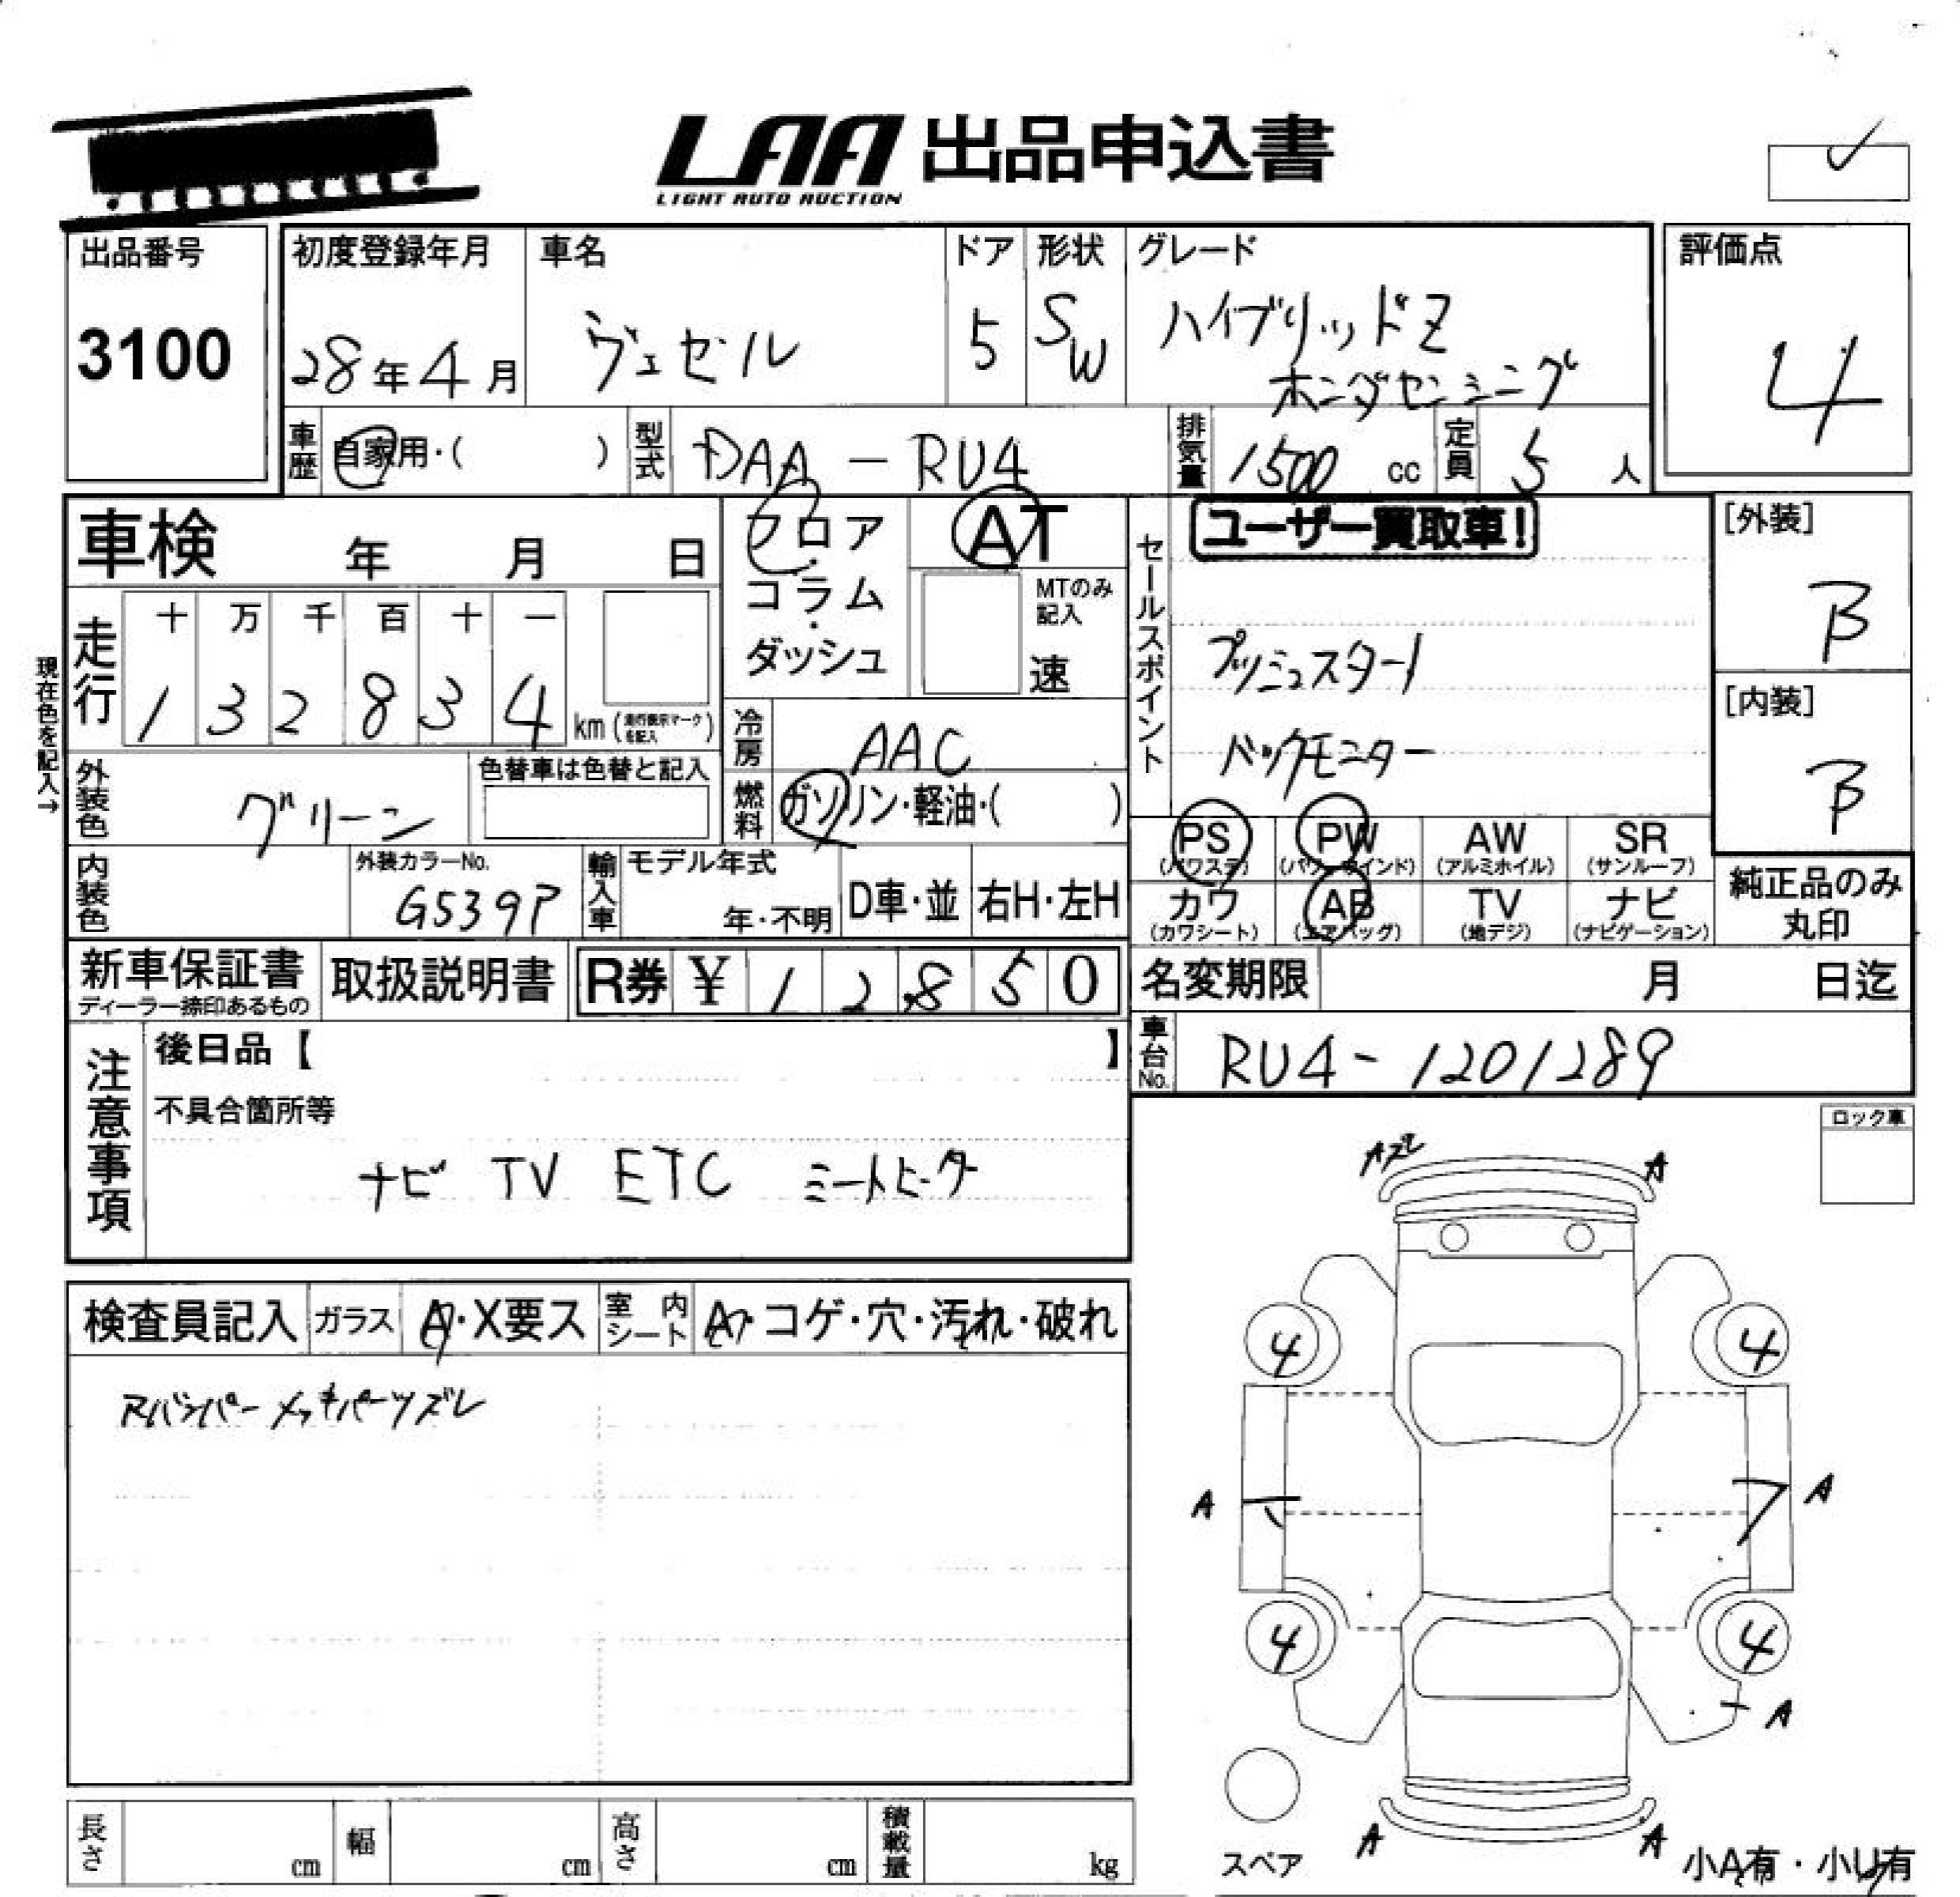 LAA 出品申込書
LIGHT AUTO AUCTION
出品番号
3100
初度登録年月
28年4月
車名
ヴェゼル
ドア
5
形状
SW
グレード
ハイブリッドZ
ホンダセンシング
評価点
4
車歴
自家用・( )
型式
DAA-RU4
排気量
1500 cc
定員
5 人
車検 年 月 日
フロア・コラム・ダッシュ
AT
MTのみ記入
速
セールスポイント
ユーザー買取車!
プッシュスタート
バックモニター
[外装]
B
[内装]
B
現在色を記入→
走行
十 万 千 百 十 一
1 3 2 8 3 4 km (走行表示マークを記入)
冷房
AAC
外装色
グリーン
色替車は色替と記入
燃料
ガソリン・軽油・( )
PS (パワステ)
PW (パワーウインド)
AW (アルミホイル)
SR (サンルーフ)
カワ (カワシート)
AB (エアバッグ)
TV (地デジ)
ナビ (ナビゲーション)
純正品のみ丸印
内装色
外装カラーNo.
G539P
輸入車
モデル年式
年・不明
D車・並
右H・左H
新車保証書
ディーラー捺印あるもの
取扱説明書
R券 ¥ 1 2 8 5 0
名変期限 月 日迄
車台No.
RU4-1201289
注意事項
後日品【 】
不具合箇所等
ナビ TV ETC シートヒーター
ロック車
検査員記入
ガラス
A・X要ス
室内シート
A・コゲ・穴・汚れ・破れ
Rバンパーメッキパーツズレ
Aズレ A
4 4
A A
4 4
A
A A
スペア
小A有・小U有
長さ cm
幅 cm
高さ cm
積載量 kg